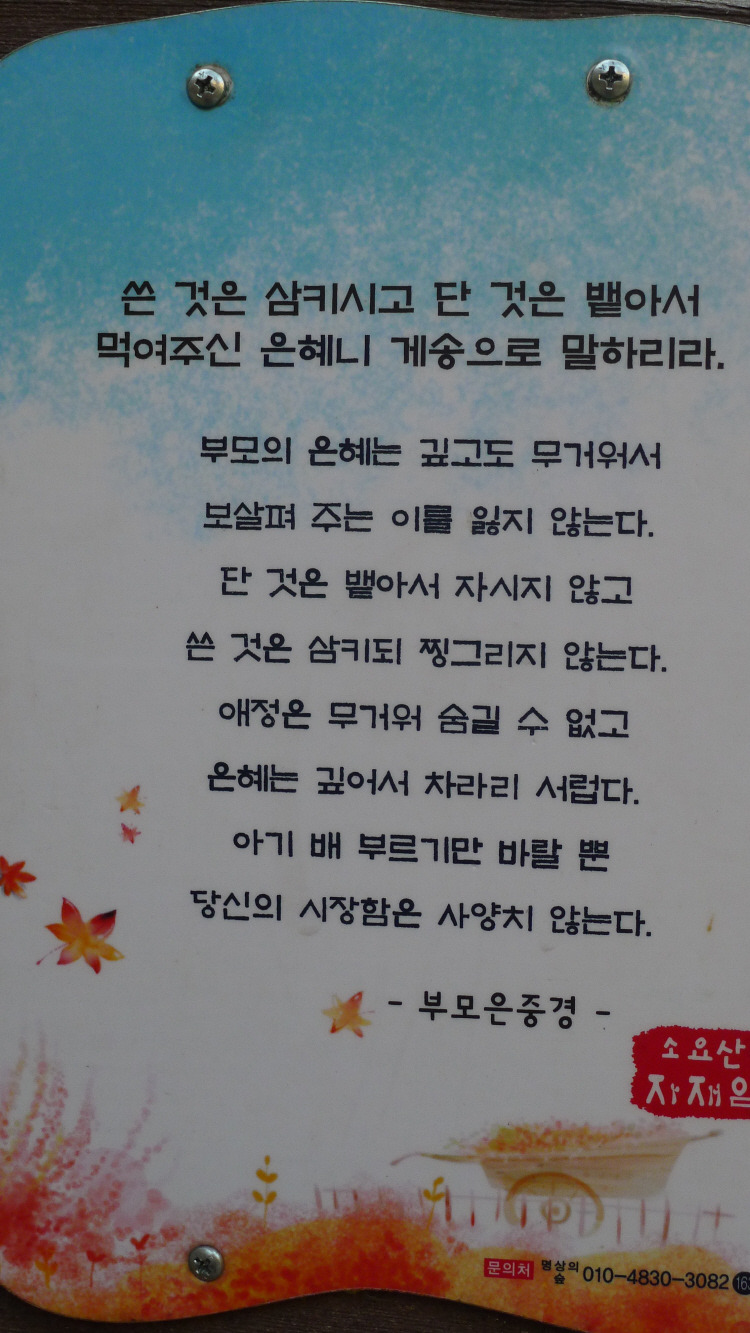 쓴 것은 삼키시고 단 것은 뱉아서
먹여주신 은혜니 게송으로 말하리라.
부모의 은혜는 깊고도 무거워서
보살펴 주는 이를 잃지 않는다.
단 것은 뱉아서 자시지 않고
쓴 것은 삼키되 찡그리지 않는다.
애정은 무거워 숨길 수 없고
은혜는 깊어서 차라리 서럽다.
아기 배 부르기만 바랄 뿐
당신의 시장함은 사양치 않는다.
- 부모은중경 -
소요산
자재암
문의처 명상의 숲 010-4830-3082